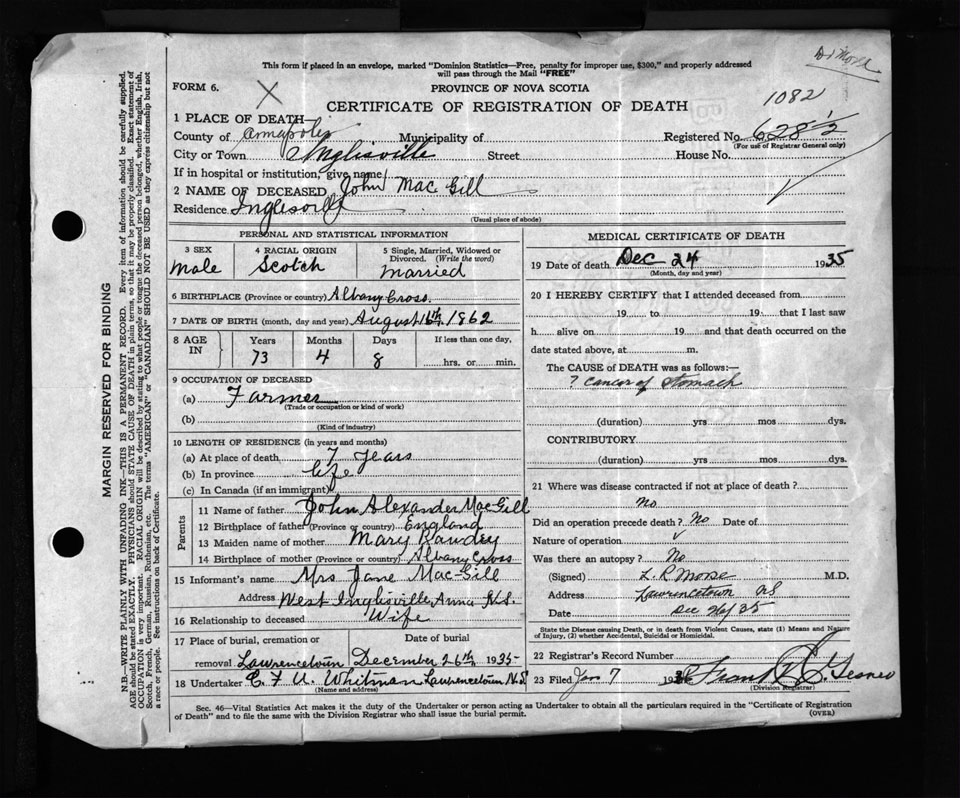 Dr Morse
This form if placed in an envelope, marked "Dominion Statistics—Free, penalty for improper use, $300," and properly addressed
will pass through the Mail "FREE"
FORM 6.
X
PROVINCE OF NOVA SCOTIA
1082
CERTIFICATE OF REGISTRATION OF DEATH
1 PLACE OF DEATH—
County of Annapolis Municipality of Registered No. 628½
(For use of Registrar General only)
City or Town Inglisville Street House No.
If in hospital or institution, give name
2 NAME OF DECEASED John Mac Gill
Residence Inglisville
(Usual place of abode)
PERSONAL AND STATISTICAL INFORMATION
3 SEX 4 RACIAL ORIGIN 5 Single, Married, Widowed or Divorced. (Write the word)
Male Scotch Married
6 BIRTHPLACE (Province or country) Albany Cross.
7 DATE OF BIRTH (month, day and year) August 16th 1862
8 AGE IN Years Months Days If less than one day,
73 4 8 hrs. or min.
9 OCCUPATION OF DECEASED
(a) Farmer
(Trade or occupation or kind of work)
(b)
(Kind of industry)
10 LENGTH OF RESIDENCE (in years and months)
(a) At place of death 7 Years
(b) In province life
(c) In Canada (if an immigrant)
Parents
11 Name of father John Alexander MacGill
12 Birthplace of father (Province or country) England
13 Maiden name of mother Mary
14 Birthplace of mother (Province or country) Albany Cross
15 Informant's name Mrs Jane Mac-Gill
Address West Inglisville Anna N.S.
16 Relationship to deceased Wife
17 Place of burial, cremation or Date of burial
removal Lawrencetown December 26th 1935
18 Undertaker Whitman Lawrencetown N.S
(Name and address)
MEDICAL CERTIFICATE OF DEATH
19 Date of death Dec 24 1935
(Month, day and year)
20 I HEREBY CERTIFY that I attended deceased from
19 to 19 that I last saw
h alive on 19 and that death occurred on the
date stated above, at m.
The CAUSE of DEATH was as follows:—
? cancer of stomach
(duration) yrs mos dys.
CONTRIBUTORY
(duration) yrs mos dys.
21 Where was disease contracted if not at place of death?
No
Did an operation precede death? No Date of
Nature of operation
Was there an autopsy? No
(Signed) L. R Morse M.D.
Address Lawrencetown NS
Date Dec 26/35
State the Disease causing Death, or in death from Violent Causes, state (1) Means and Nature
of Injury, (2) whether Accidental, Suicidal or Homicidal.
22 Registrar's Record Number
23 Filed Jan 7 193 Frank Gesner
(Division Registrar)
Sec. 46—Vital Statistics Act makes it the duty of the Undertaker or person acting as Undertaker to obtain all the particulars required in the "Certificate of Registration
of Death" and to file the same with the Division Registrar who shall issue the burial permit. (OVER)
MARGIN RESERVED FOR BINDING
N.B.—WRITE PLAINLY WITH UNFADING INK—THIS IS A PERMANENT RECORD. Every item of information should be carefully supplied.
AGE should be stated EXACTLY. PHYSICIANS should STATE CAUSE OF DEATH in plain terms, so that it may be properly classified. Exact statement of
OCCUPATION is very important. RACIAL ORIGIN will be described by stating to what people or tongue the deceased person belonged, whether English, Irish,
Scotch, French, German, Russian, Ruthenian, etc. The terms "AMERICAN" or "CANADIAN" SHOULD NOT BE USED as they express citizenship but not
a race or people. See instructions on back of Certificate.